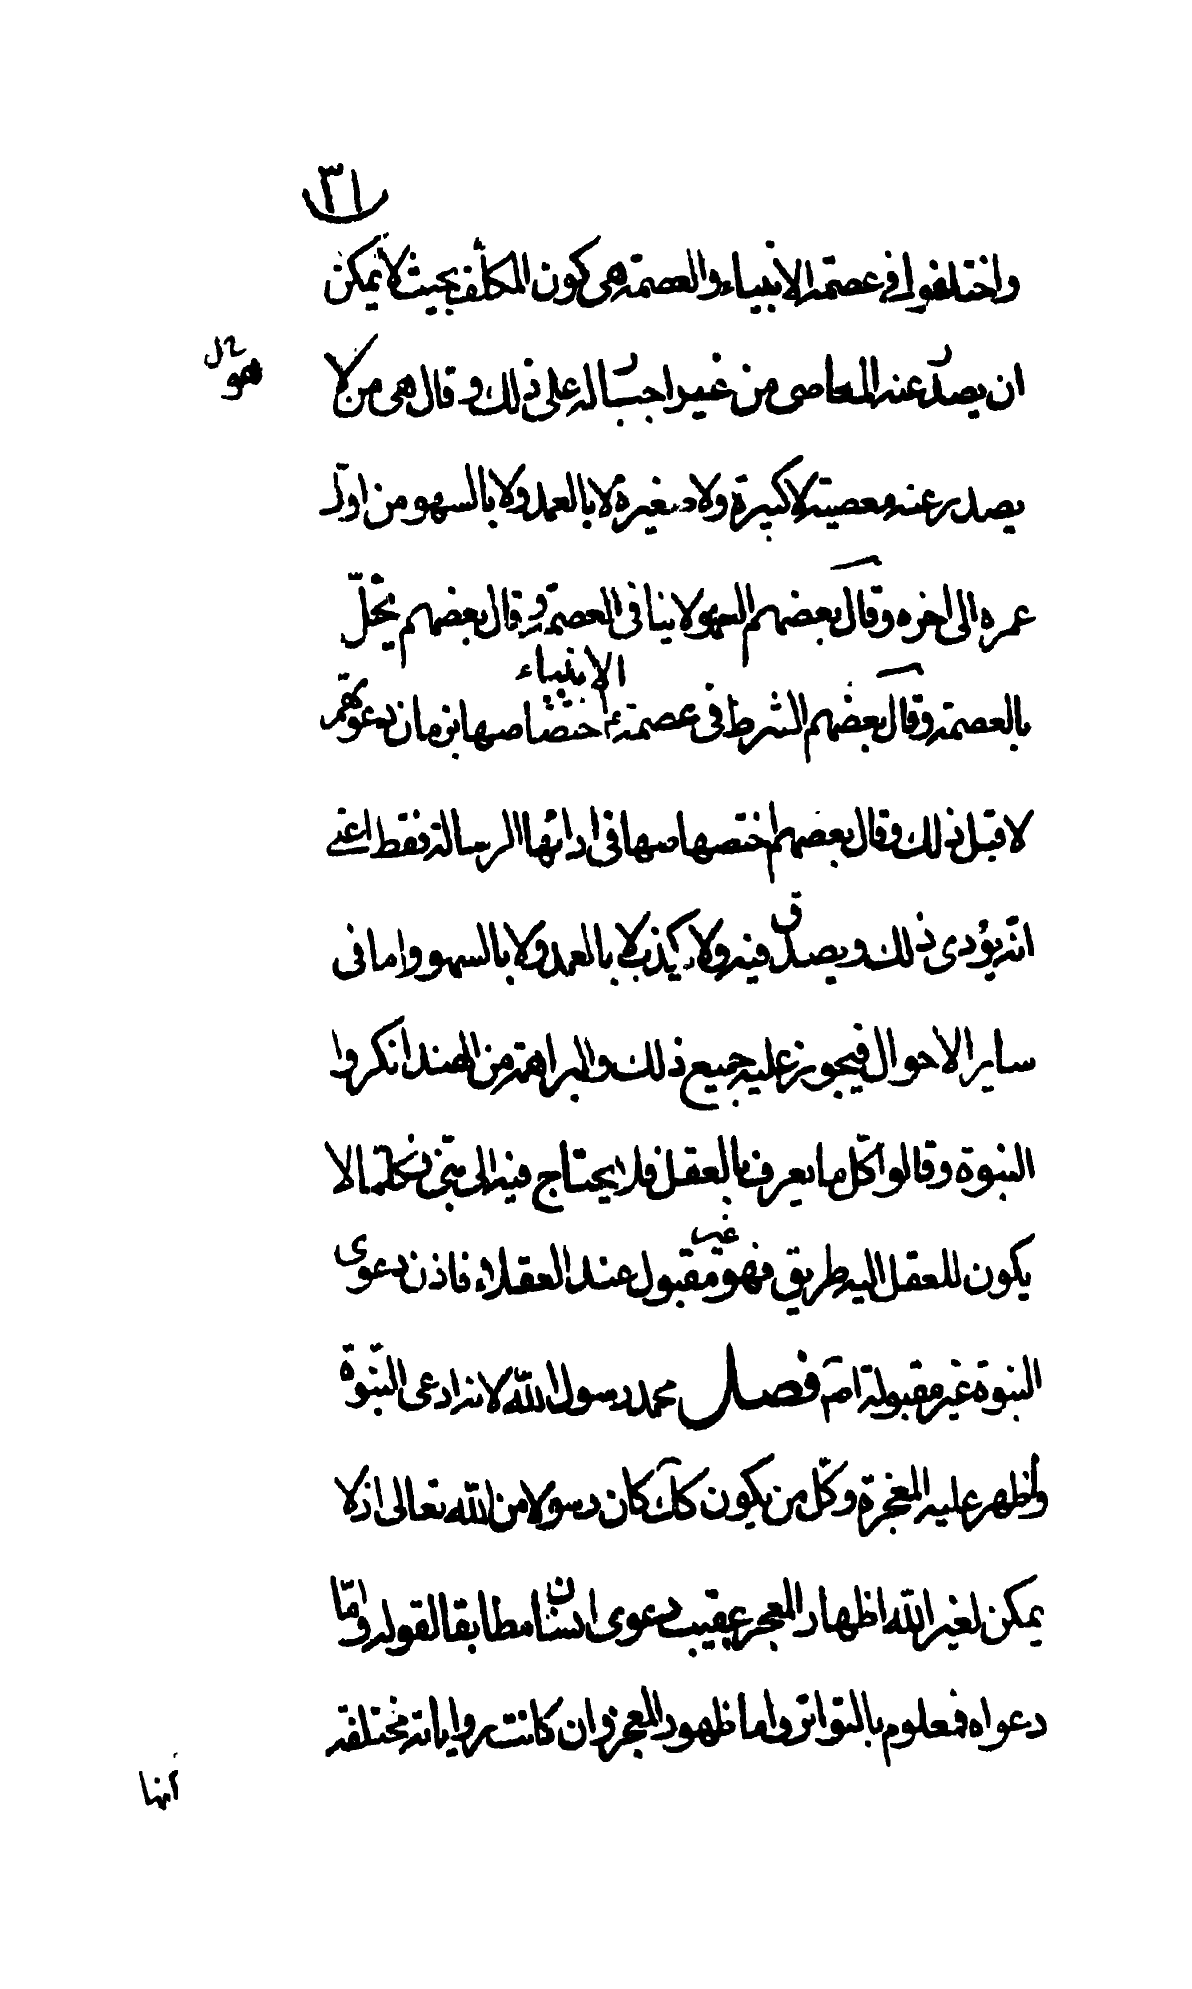 ٣١
واختلفوا في عصمة الانبياء والعصمة هى كون المكلّف بحيث لا يمكن
ان يصدر عنه المعاصى من غير اجبار له على ذلك وقال هى من لا
هو
يصدر عنه معصية لا كبيرة ولا صغيرة لا بالعمد ولا بالسهو من اوّل
عمره الى اخره وقال بعضهم السهو لا ينافى العصمة وقال بعضهم يخلّ
الانبياء
بالعصمة وقال بعضهم الشرط فى عصمة اختصاصها بزمان دعوتهم
لا قبل ذلك وقال بعضهم اختصاصها فى ادائها الرسالة فقط اعنى
انّه يؤدى ذلك ويصدق فيه ولا يكذب لا بالعمد ولا بالسهو واما فى
ساير الاحوال فيجوز عليه جميع ذلك والبراهمة من الهند انكروا
النبوة وقالوا كلّ ما يعرف بالعقل فلا يحتاج فيه الى نبّى وكلّما لا
يكون للعقل اليه طريق فهو غير مقبول عند العقلاء فاذن دعوى
النبوة غير مقبولة امّ فصل محمد رسول اللّه لانه ادعى النبّوة
واظهر عليه المعجزة وكلّ من يكون كك كان رسولا من اللّه تعالى اذ لا
يمكن لغير اللّه اظهار المعجز عقيب دعوى انسان مطابقا لقوله وامّا
دعواه فمعلوم بالتواتر واما ظهور المعجز وان كانت رواياته مختلفة
انها